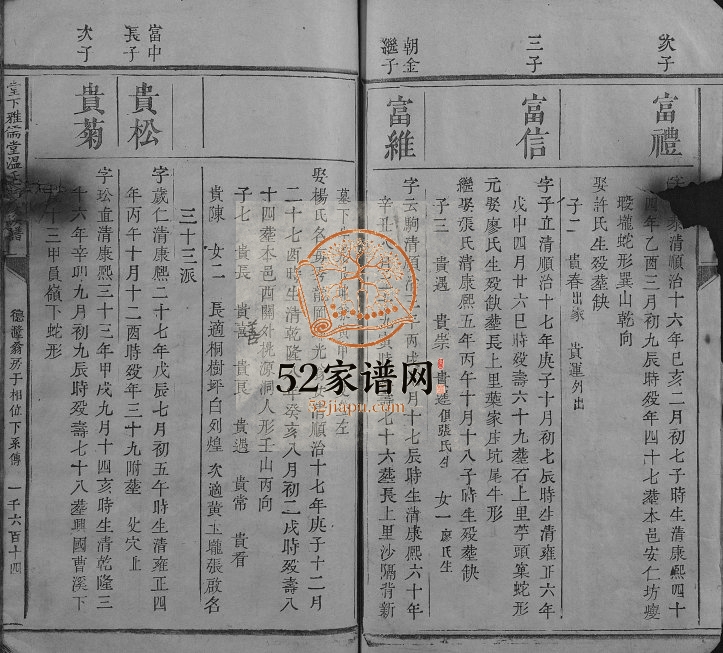 次子
富禮
清順治十六年巳亥二月初七子時生清康熙四十
四年乙酉三月初九辰時殁年四十七塟本邑安仁坊
瓏蛇形巽山乾向
娶許氏生殁塟缺
子二 貴春出家 貴運外出
三子
富信
字子直清順治十七年庚子十月初七辰時生清雍正六年
戊申四月廿六巳時殁壽六十九塟石上里芋頭窠蛇形
元娶廖氏生殁缺塟長上里葉家庄坑尾牛形
繼娶張氏清康熙五年丙午十月十八子時生殁塟缺
子三 貴遇 貴崇 貴達俱張氏生 女一廖氏生
朝金繼子
富維
字云駒清順治三年丙戌 月十七辰時生清康熙六十年
辛丑八月 寅時 七十六塟長上里沙隔背新
墓下 左
娶楊氏名 清順治十七年庚子十二月
二十七酉時生清乾隆 年癸亥八月初二戌時殁壽八
十四塟本邑西關外桃源洞人形壬山丙向
子七 貴長 貴善 貴良 貴遇 貴常 貴看
貴陳 女二 長適桐樹坪白列煌 次適黃玉瓏張啟名
三十三派
富中長子
貴松
字歲仁清康熙二十七年戊辰七月初五午時生清雍正四
年丙午十月十二酉時殁年三十九附塟 父穴上
次子
貴菊
字玜直清康熙三十三年甲戌九月十四亥時生清乾隆三
十六年辛卯九月初九辰時殁壽七十八塟興國曹溪下
十三甲員嶺下蛇形
堂下雅儒堂溫氏 譜
德 翁房于相位下系傳 一千六百十四
52家谱网
52jiapu.com